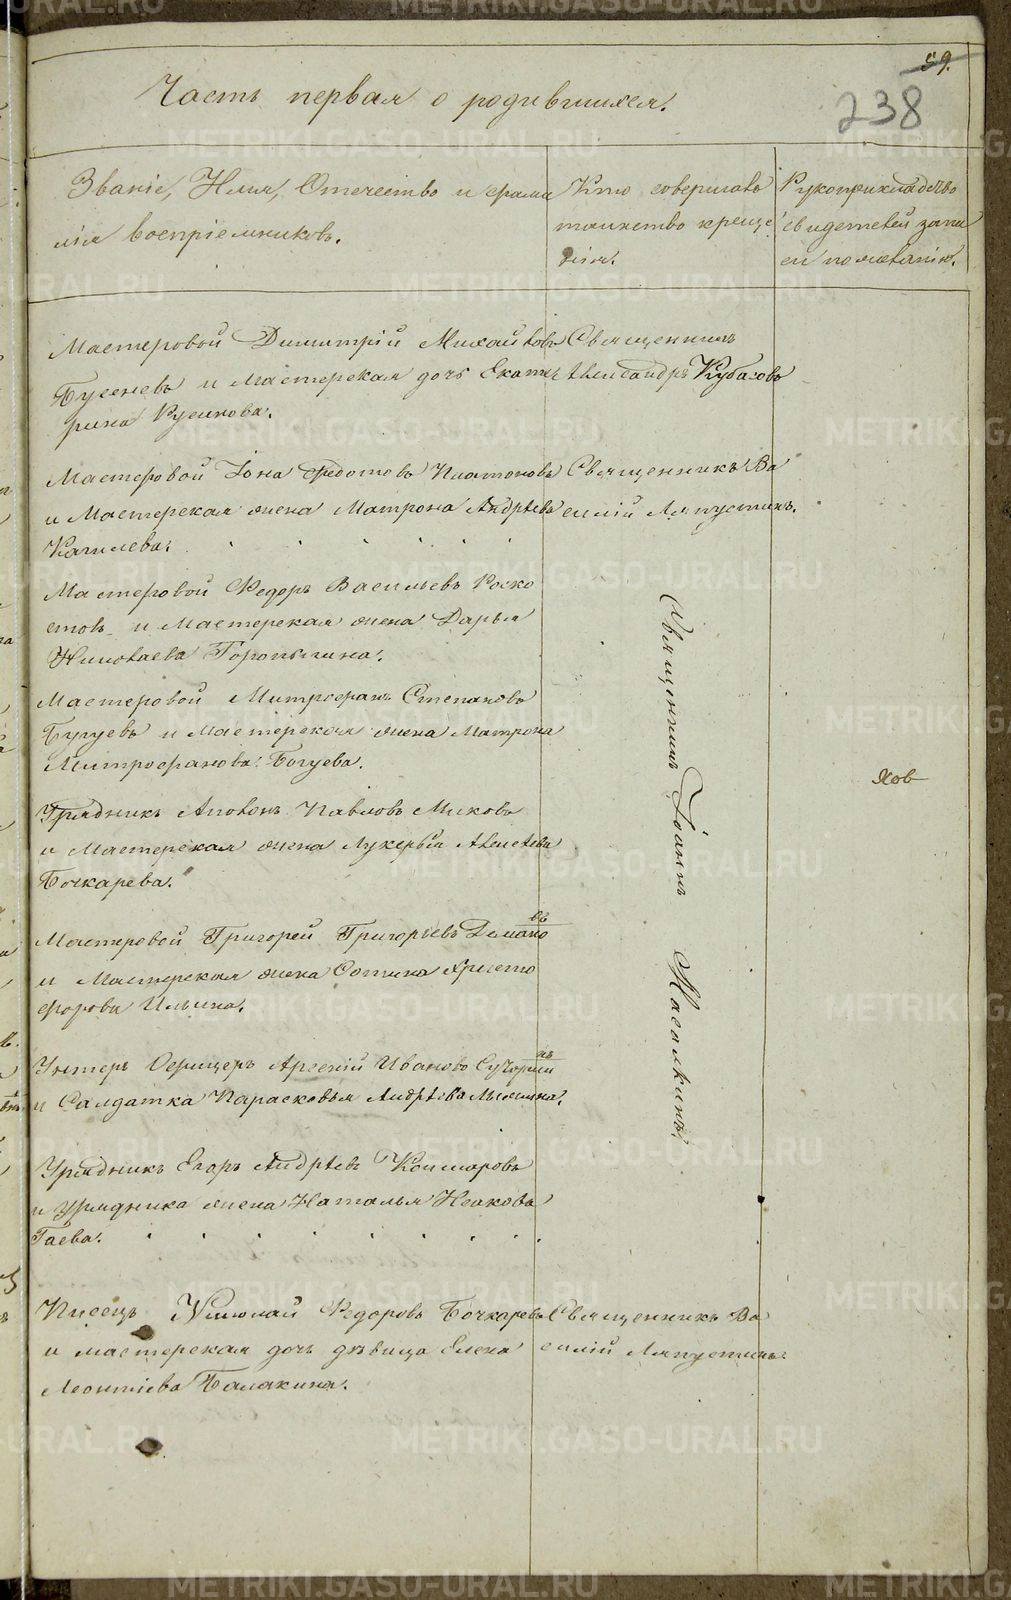 59.
238
Часть первая о родившихся.
Званіе, Имя, Отечество и фами
лія воспріемниковъ.
Кто совершалъ
таинство креще
нія.
Рукоприкладство
свидетелей запи
си по желанію.
Мастеровой Димитрій Михайловъ
и Мастерская дочь Екате
рина
Священникъ
Александръ Кубасовъ
Мастеровой Іона Федотовъ Платоновъ
и Мастерская жена Матрона Андрѣева
Священникъ Ва
силій Ляпустинъ.
Мастеровой Федоръ Васильевъ Роско
стовъ и Мастерская жена Дарья
Николаева Горопыгина.
Мастеровой Митрофанъ Степановъ
Бугуевъ и Мастерская жена Матрона
Митрофанова Богуева.
Урядникъ Аполонъ Павловъ Миковъ
и Мастерская жена Лукерья Алексѣева
Бочкарева.
Мастеровой Григорей Григорьевъ
и Мастерская жена Христо
форова Ильина.
Унтеръ Офицеръ Арсеній Ивановъ
и Салдатка Парасковья Андрѣева
Урядникъ Егоръ Андрѣевъ Кошмаровъ
и Урядника жена Наталья Исакова
Гаева.
Священникъ Іоаннъ
Писецъ Николай Федоровъ Бочкаревъ
и мастерская дочь дѣвица Елена
Леонтіева Балакина.
Священникъ Ва
силій Ляпустинъ.
METRIKI.GASO-URAL.RU